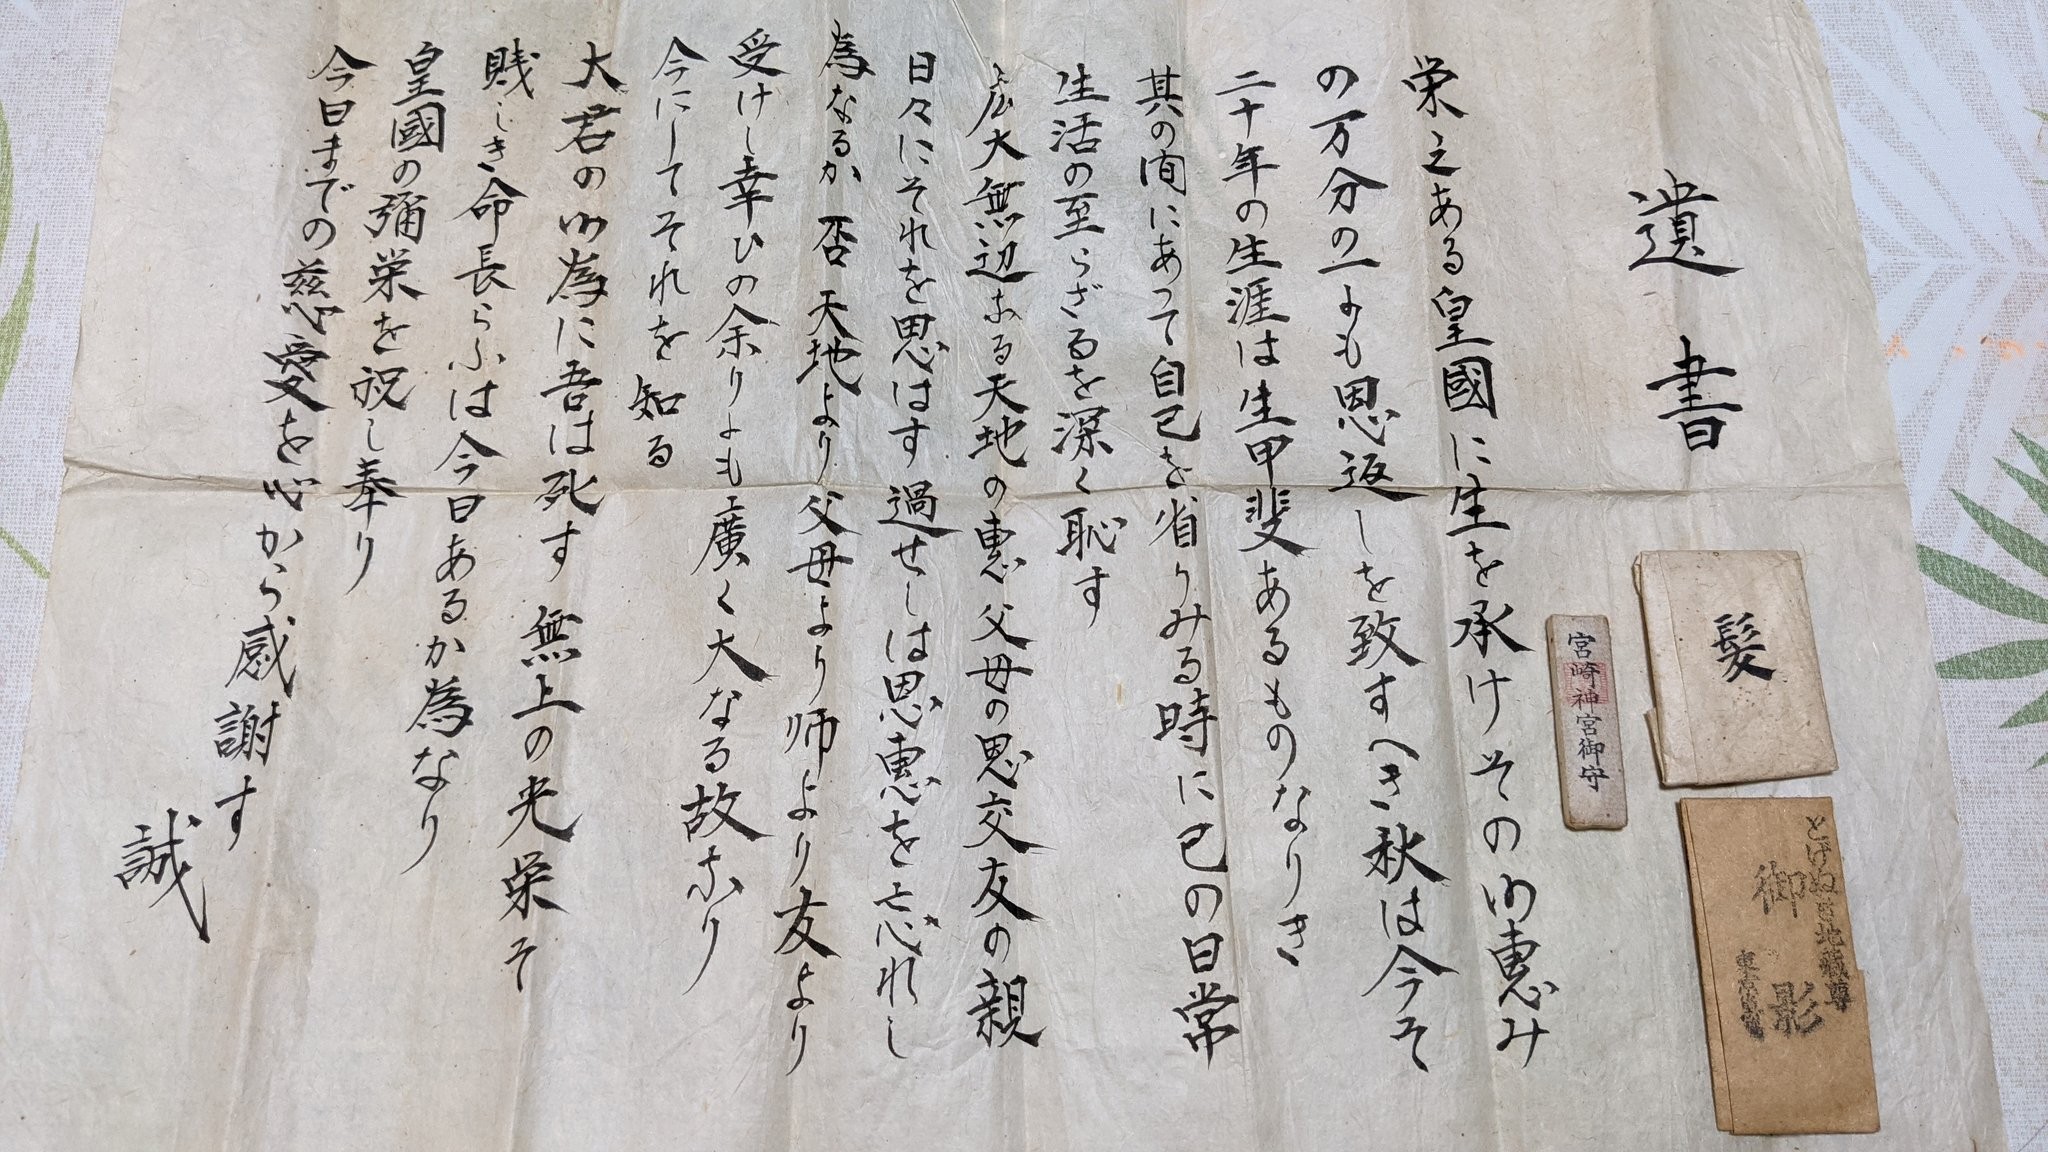 遺書
栄之ある皇國に生を承けその御恵み
の万分の一よも恩返しを致すへき秋は今そ
二十年の生涯は生甲斐あるものなりき
其の間にあつて自己を省りみる時に己の日常
生活の至らざるを深く恥す
広大無辺なる天地の恵父母の恩交友の親
日々にそれを思はす過せしは恩恵を亡忘れし
為なるか 否 天地より父母より师より友より
受けし幸ひの余りよも廣く大なる故なり
今にしてそれを知る
大君の御為に吾は死す 無上の光栄そ
賎しき命長らふは今日あるか為なり
皇國の彌栄を祝し奉り
今日までの慈愛を心から感謝す
誠
髪
宮崎神宮御守
とげぬき地蔵尊
御影